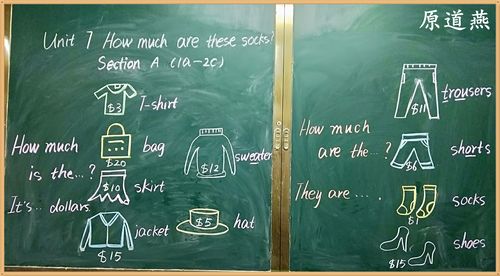 Unit 7 How much are these socks?
Section A (1a-2c)
$3 T-shirt
How much
is the...?
It's... dollars.
$20 bag
$10 skirt
$12 sweater
$15 jacket
$5 hat
原道燕
$11 trousers
How much
are the...?
They are....
$6 shorts
$1 socks
$15 shoes